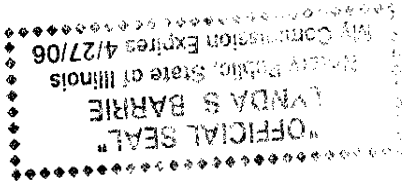 "OFFICIAL SEAL"
LYNDA S BARRIE
Notary Public, State of Illinois
My Commission Expires 4/27/06